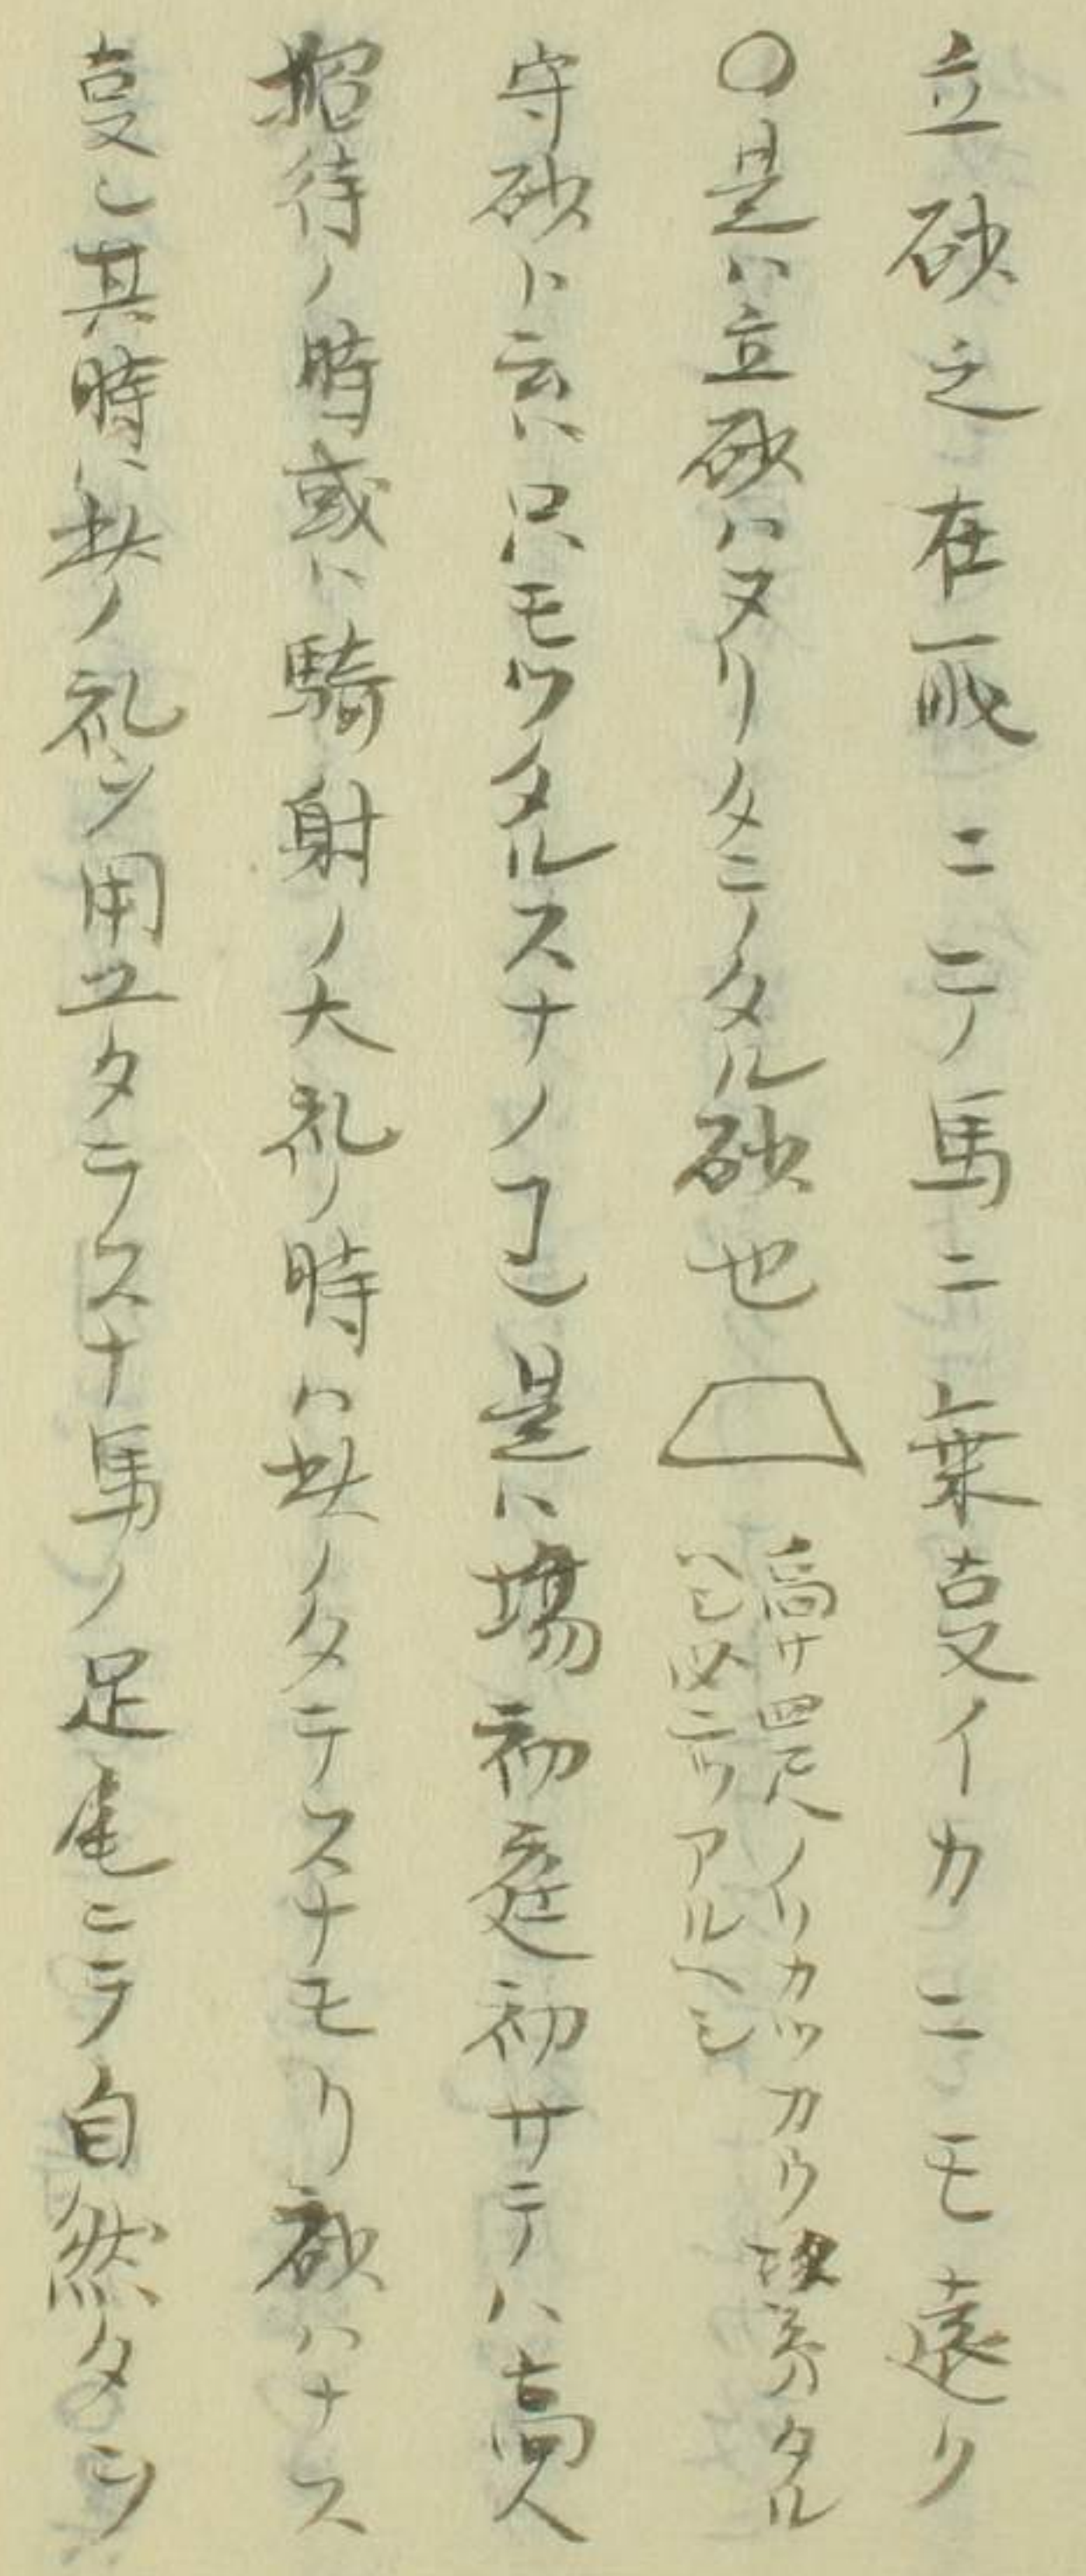 立砂之在所ニテ馬ニ乗事イカニモ遠ク
〇是ハ立砂ハヌリタニノタル砂也
高サ四尺ノリカツカウ
ヘシ必二ツアルヘシ
守砂ト云ハ只モツタルスナノヿ也是ハ場初庭初サテハ高人
招待ノ時或ハ騎射ノ大礼ノ時ハ此ノタテスナモリ砂ハナス
事也其時ハ此ノ礼ヲ用ユタテスナ馬ノ足尾ニテ自然タヲ